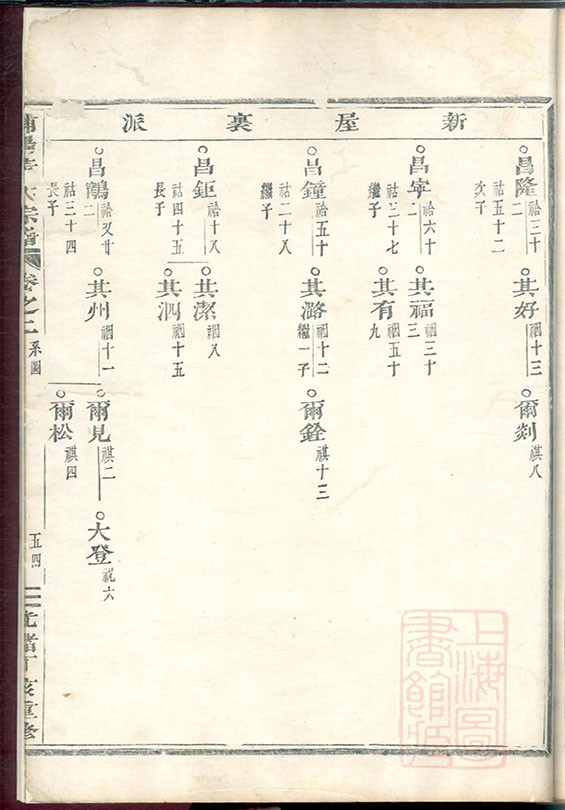 新屋裏派
昌隆 祫三十二
祜五十二次子
共好 祻十三
爾剡 祺八
昌寧 祫六十二
祜三十七繼子
共福 祻三十三
共有 祻五十九
昌鐘 祫五十
祜二十八繼子
共潞 祻十二繼一子
爾銓 祺十三
昌鉅 祫十八
祜四十五長子
共潔 祻八
共泗 祻十五
昌鶴 祫又廿二
祜三十四長子
共州 祻十一
爾見 祺二
大登 祝六
爾松 祺四
大宗譜 卷之二 系圖 五四 光緒丁亥重修
上海圖書館藏